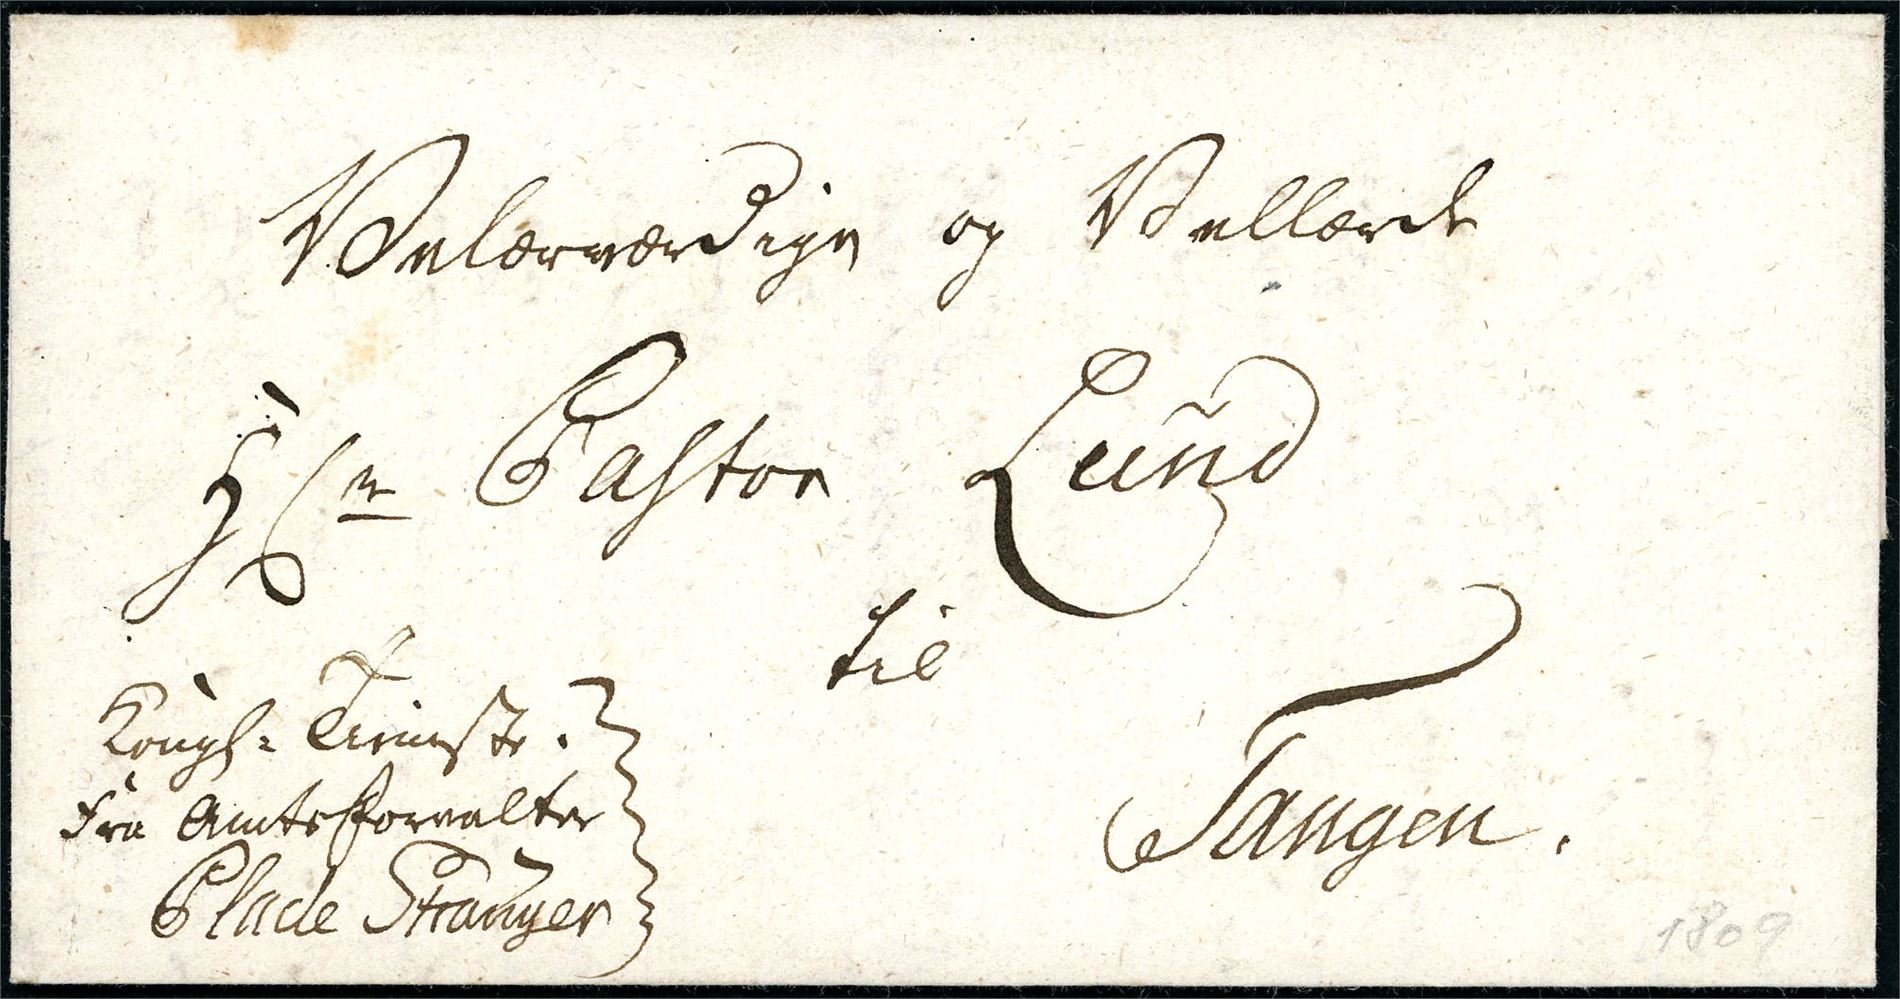 Velærværdige og Vellærde
Hr Pastor Lund
til
Tangen.
Kongl: Tieniste.
Fra Amtsforvalter
Plade Stranger
1809